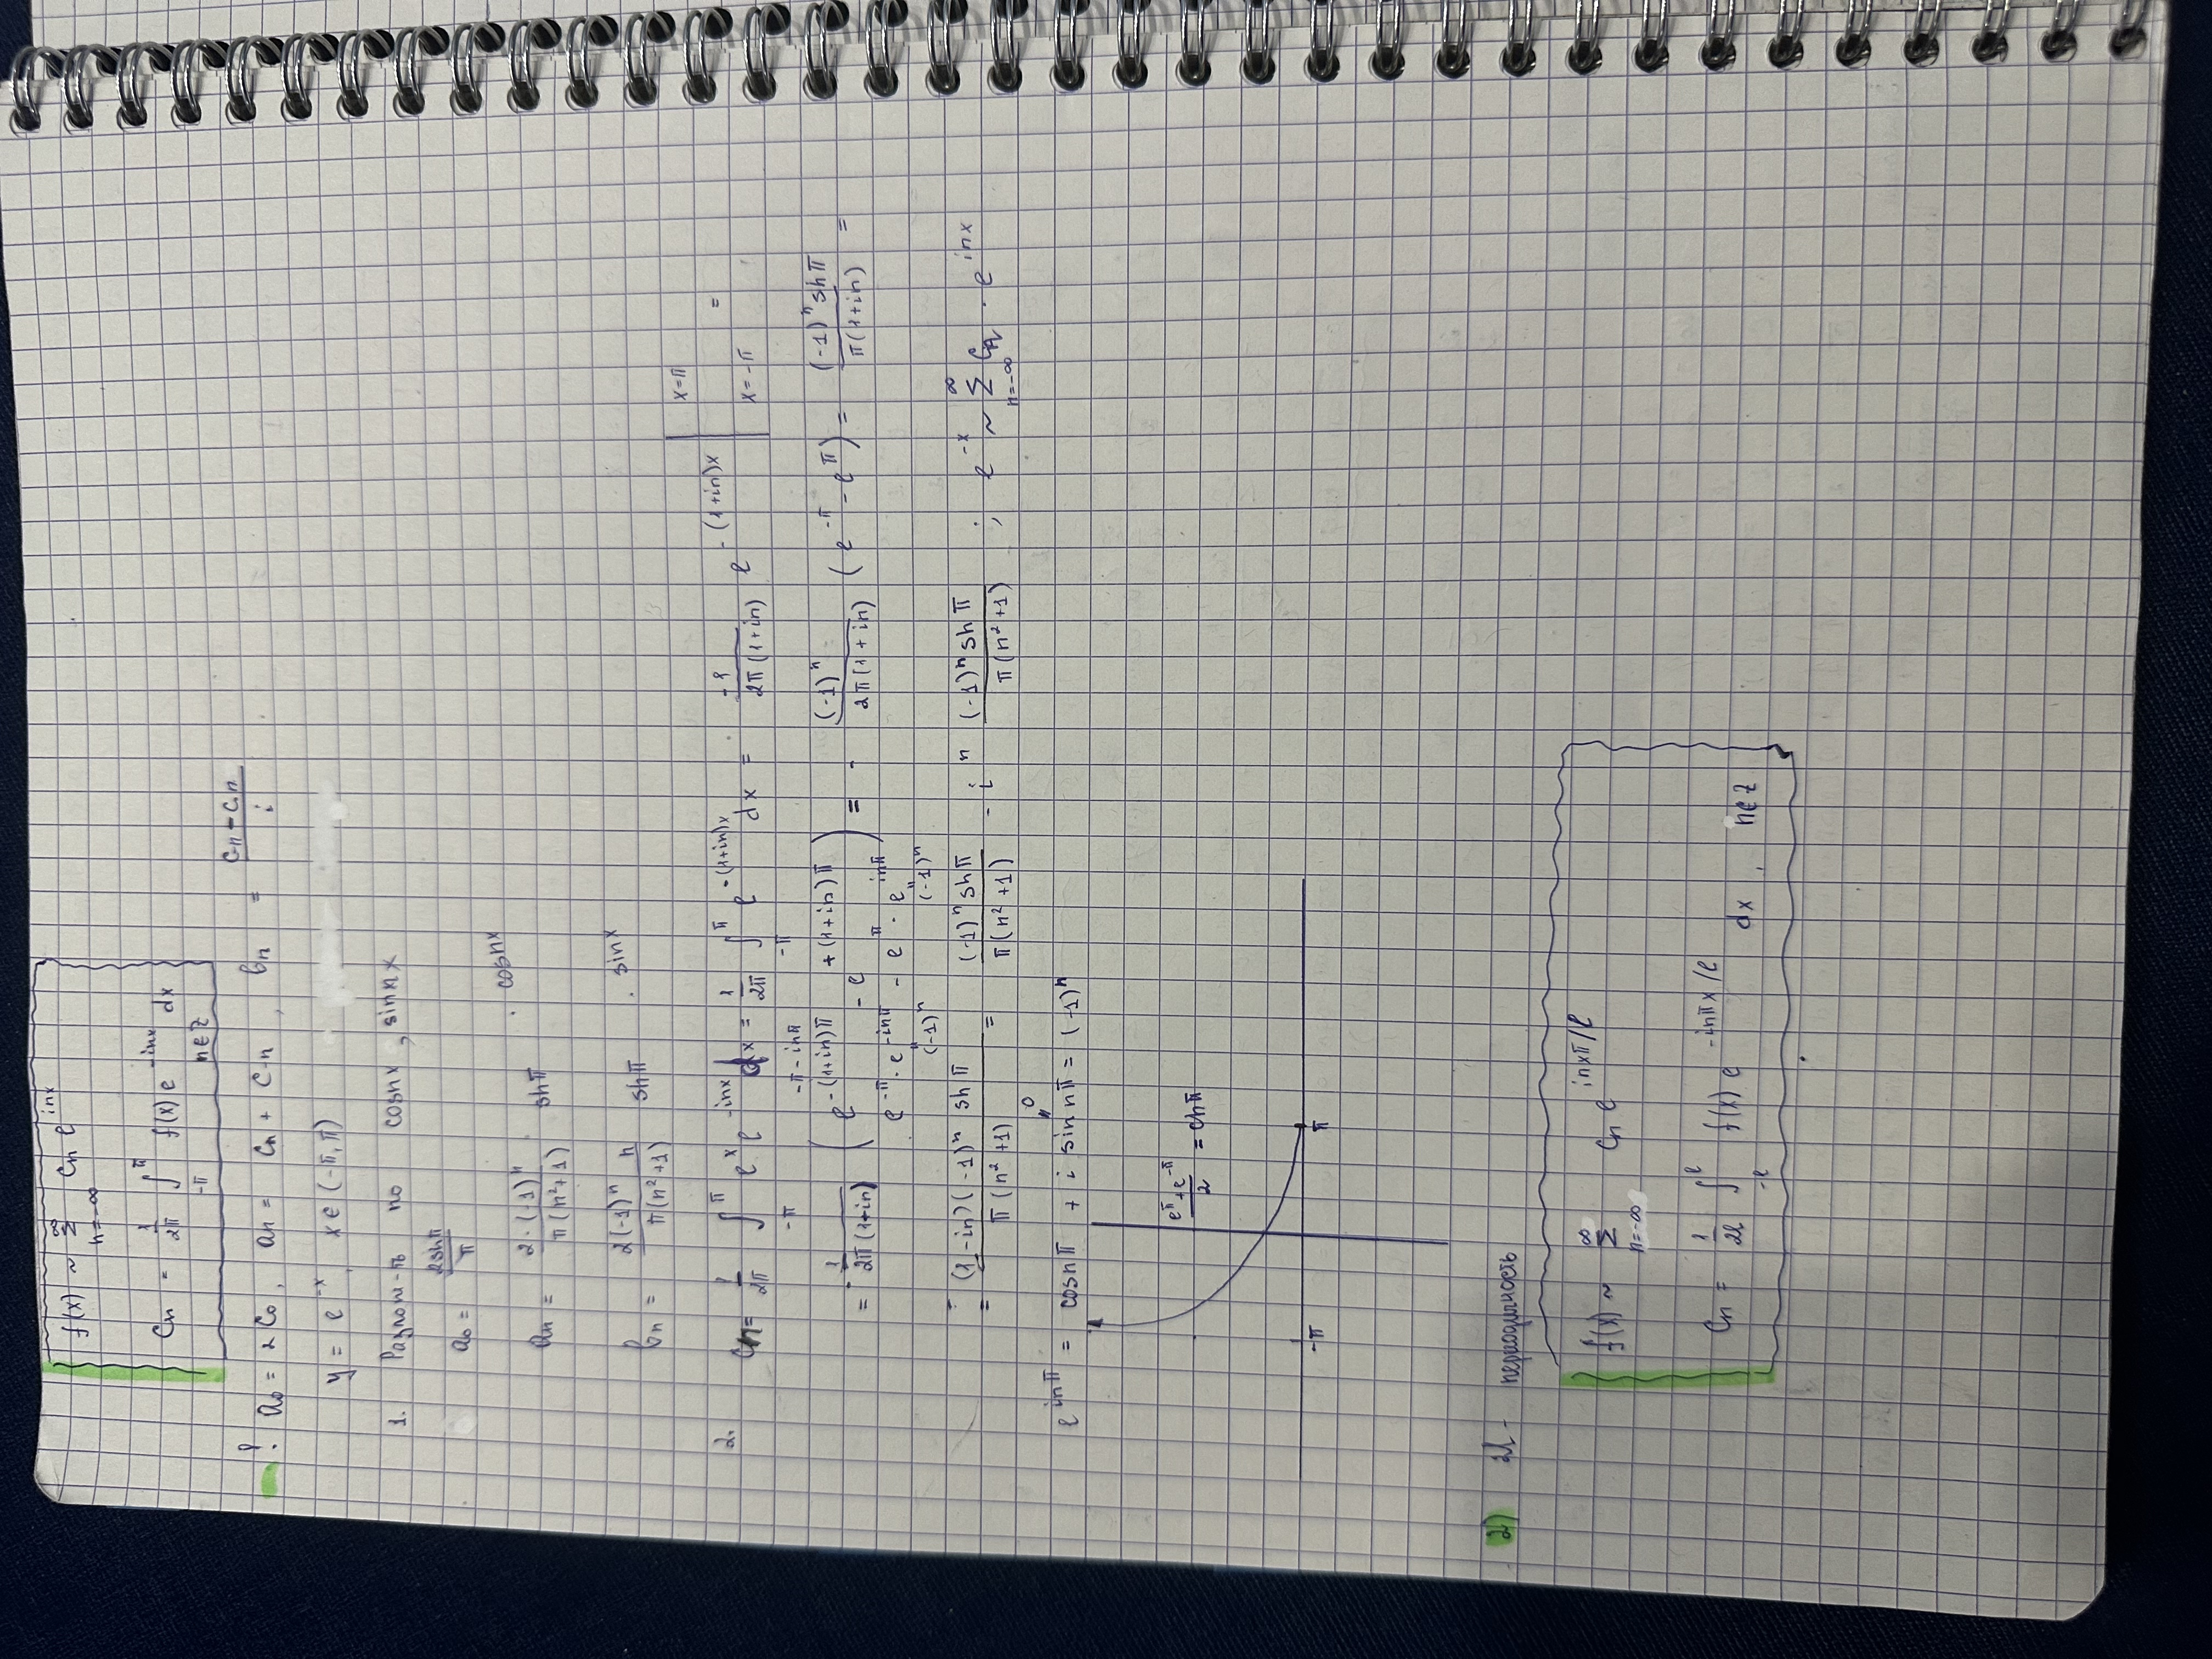 f(x) ~ ∞Σn=-∞ Cn e^inx
Cn = 1/2π ∫-π^π f(x) e^-inx dx
n∈Z
! a₀ = 2C₀, an = Cn + C-n, bn = (C-n - Cn)/i
y = e^-x, x∈(-π,π)
1. Разлож-ть по cosnx, sinnx
a₀ = 2shπ/π
an = 2·(-1)^n/π(n²+1) shπ · cosnx
bn = 2(-1)^n n/π(n²+1) shπ · sinx
2. Cn = 1/2π ∫-π^π e^x e^-inx dx = 1/2π ∫-π^π e^-(1+in)x dx = -1/2π(1+in) e^-(1+in)x | x=π x=-π =
-π-inπ
= -1/2π(1+in) (e^-(1+in)π - e^+(1+in)π) = - (-1)^n/2π(1+in) (e^-π - e^π) = (-1)^n shπ/π(1+in) =
e^-π · e^-inπ - e^π · e^inπ
" (-1)^n " (-1)^n
= (1-in)(-1)^n shπ/π(n²+1) = (-1)^n shπ/π(n²+1) - i n (-1)^n shπ/π(n²+1) ; e^-x ~ ∞Σn=-∞ Cn · e^inx
0
"
e^inπ = cosnπ + i sin nπ = (-1)^n
(e^π + e^-π)/2 = chπ
-π π
2) 2l - периодичность
f(x) ~ ∞Σn=-∞ Cn e^inxπ/l
Cn = 1/2l ∫-l^l f(x) e^-inπx/l dx, n∈Z